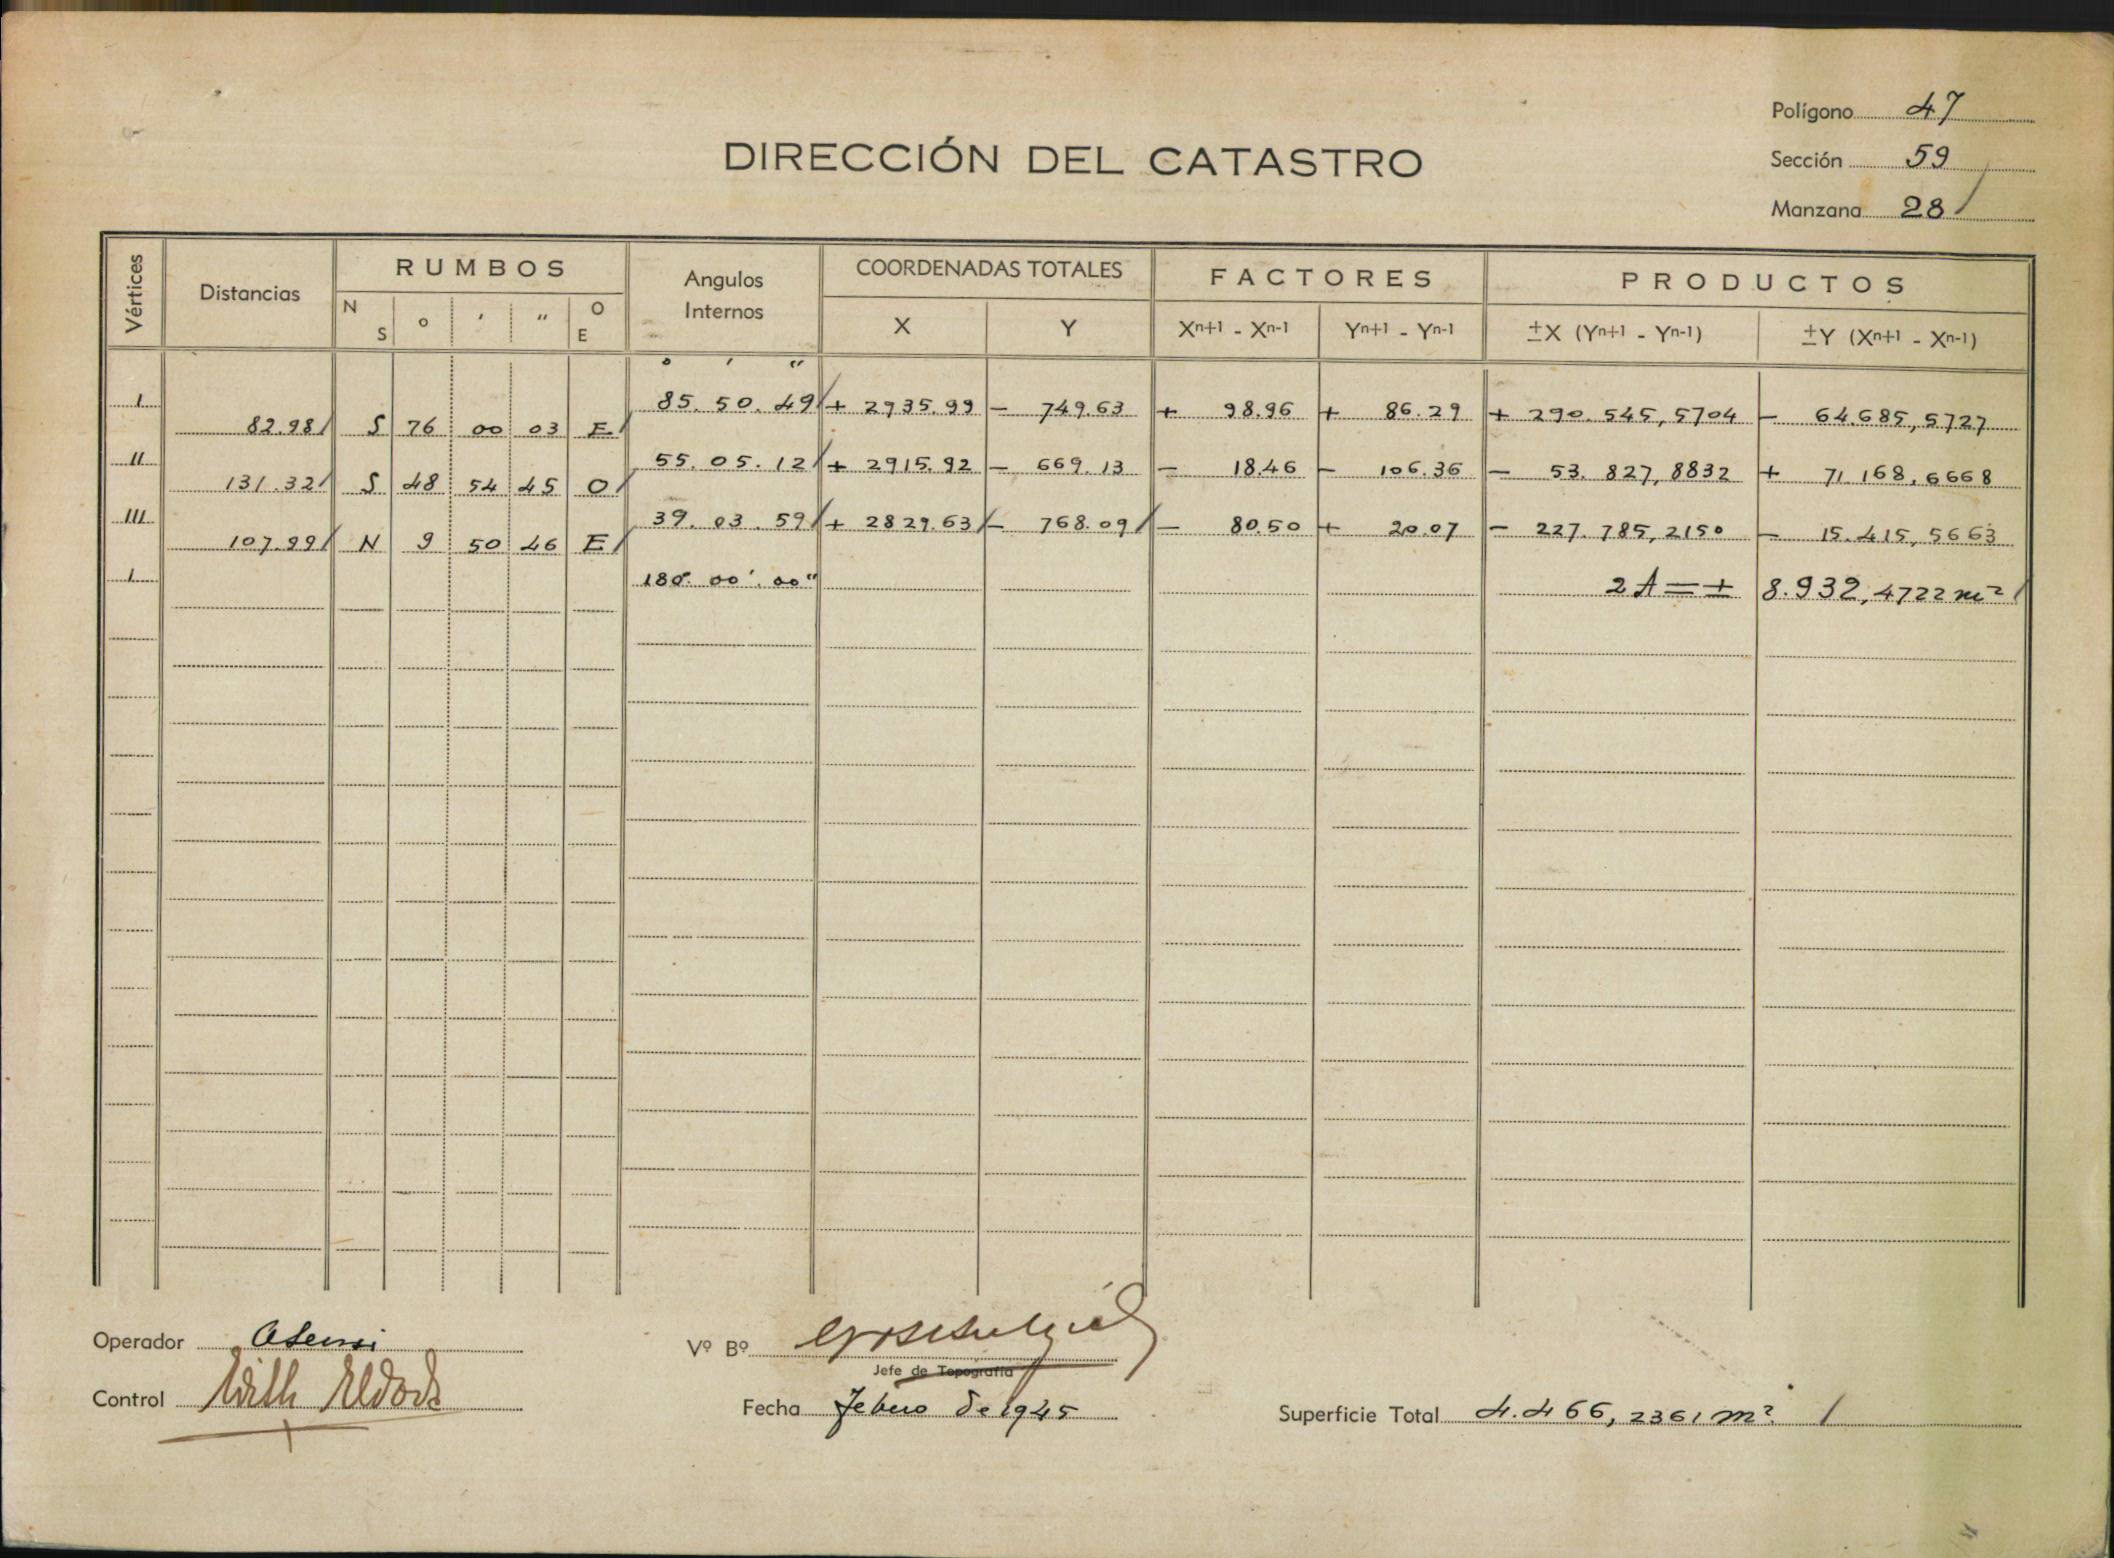 Polígono 47
DIRECCIÓN DEL CATASTRO
Sección 59
Manzana 28 /
Vértices Distancias RUMBOS Angulos Internos COORDENADAS TOTALES FACTORES PRODUCTOS
N S o ' " O E X Y Xn+1 - Xn-1 Yn+1 - Yn-1 ±X (Yn+1 - Yn-1) ±Y (Xn+1 - Xn-1)
o ' "
I 85. 50. 49 / + 2935.99 - 749.63 + 98.96 + 86.29 + 290.545,5704 - 64.685,5727
82.98 / S 76 00 03 E /
II 55. 05. 12 / + 2915.92 - 669.13 - 18.46 - 106.36 - 53.827,8832 + 71.168,6668
131.32 / S 48 54 45 O /
III 39. 03. 59 / + 2829.63 / - 768.09 / - 80.50 + 20.07 - 227.785,2150 - 15.415,5663
107.99 / N 9 50 46 E /
I 180°. 00'. 00" 2A = ± 8.932,4722 m² /
Operador
Vº Bº
Jefe de Topografía
Control
Fecha Febrero de 1945
Superficie Total 4.466,2361 m² /